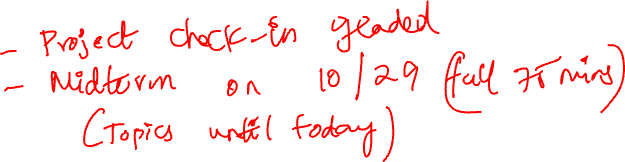 - Project check-in graded
- Midterm on 10/29 (full 75 mins)
(Topics until today)